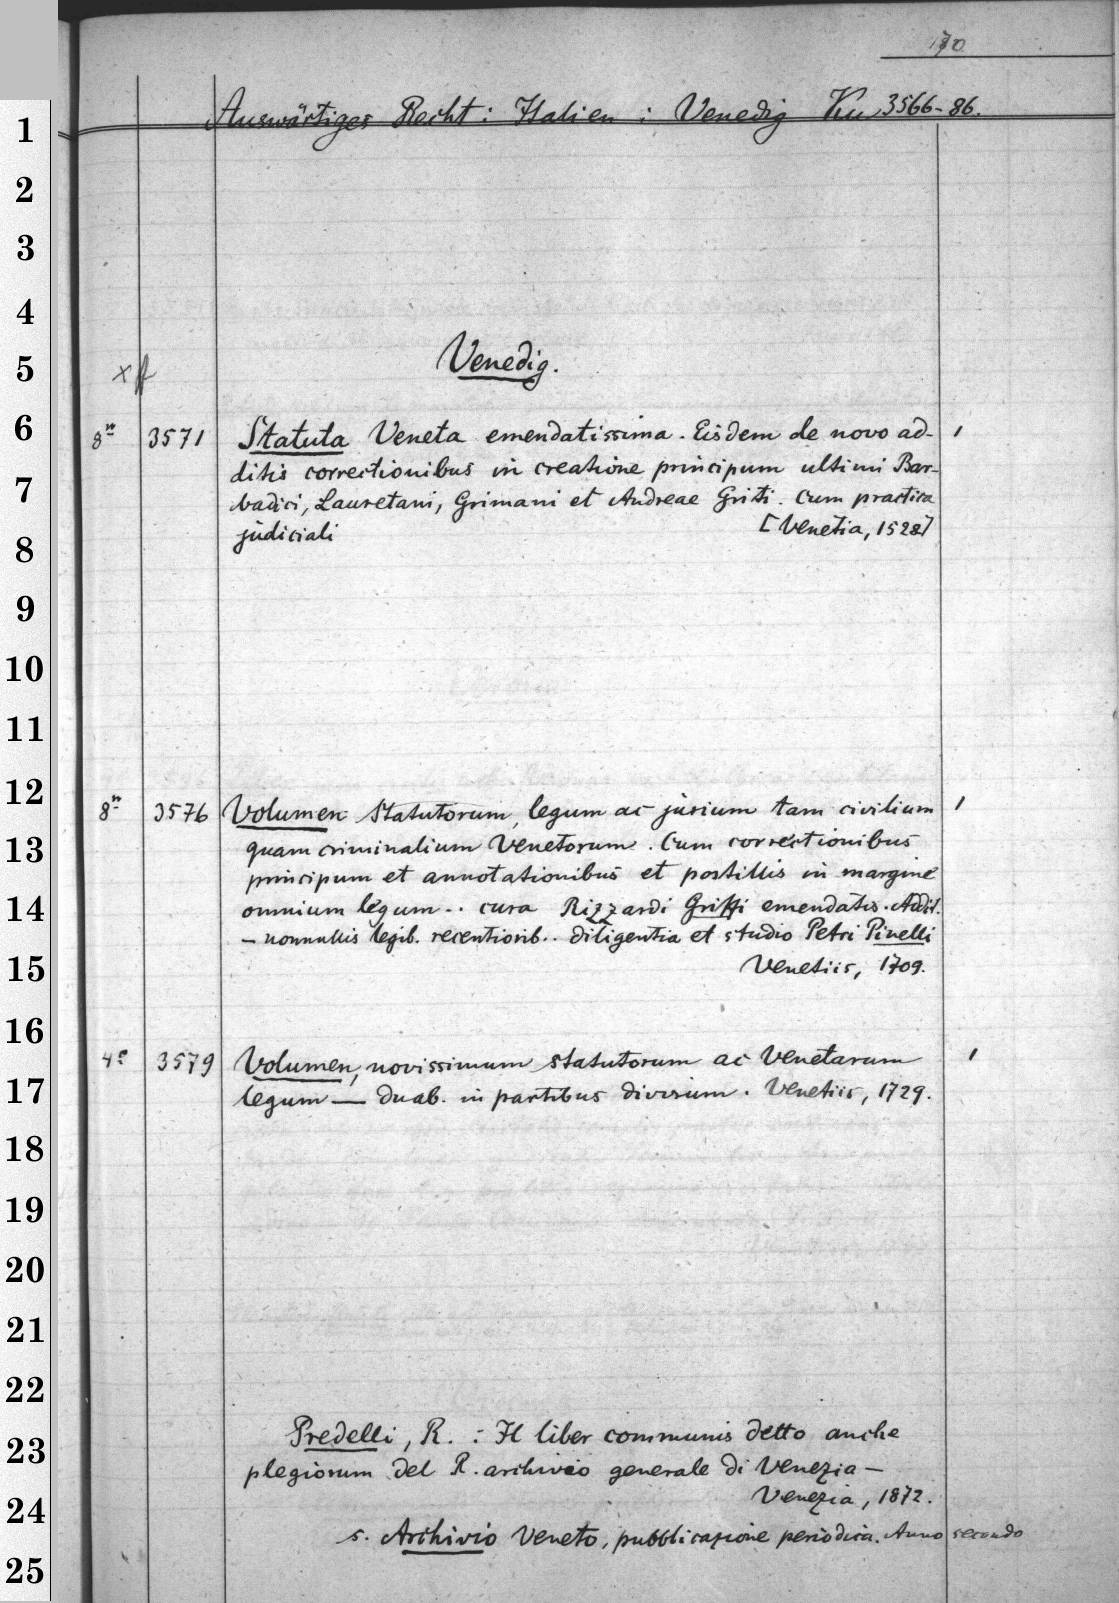 170
Auswärtiges Recht: Italien: Venedig Ku 3566-86.
Venedig.
8º 3571 Statuta Veneta emendatissima. Eisdem de novo ad- 1
ditis correctionibus in creatione principum ultimi Bar-
badici, Lauretani, Grimani et Andreae Griti. Cum practica
judiciali [Venetia, 1528]
8º 3576 Volumen Statutorum, legum ac jurium tam civilium 1
quam criminalium Venetorum. Cum correctionibus
principum et annotationibus et postillis in margine
omnium legum.. cura Rizzardi Griffi emendatis. Addit.
– nonnullis legib. recentiorib.. diligentia et studio Petri Pinelli
Venetiis, 1709.
4º 3579 Volumen, novissimum statutorum ac Venetarum 1
legum — duab. in partibus divisum. Venetiis, 1729.
Predelli, R.: Il liber communis detto anche
plegiorum del R. archivio generale di Venezia –
Venezia, 1872.
s. Archivio Veneto, pubblicazione periodica. Anno secondo
1
2
3
4
5
6
7
8
9
10
11
12
13
14
15
16
17
18
19
20
21
22
23
24
25